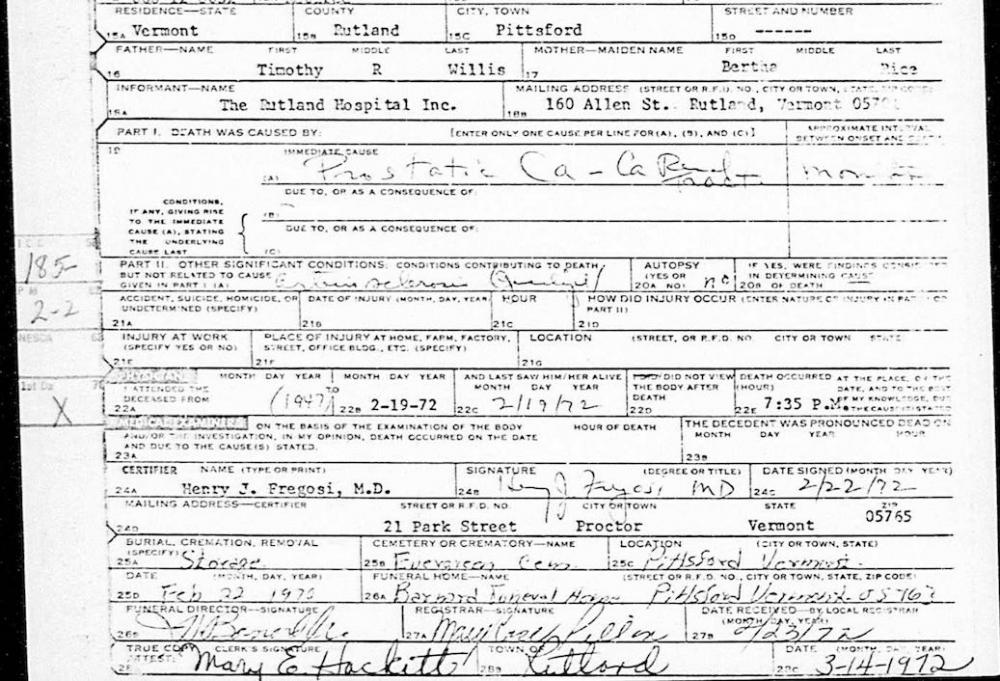 RESIDENCE—STATE COUNTY CITY, TOWN STREET AND NUMBER
15A Vermont 15B Rutland 15C Pittsford 15D ------
FATHER—NAME FIRST MIDDLE LAST MOTHER—MAIDEN NAME FIRST MIDDLE LAST
16 Timothy R Willis 17 Bertha Rice
INFORMANT—NAME MAILING ADDRESS (STREET OR R.F.D. NO., CITY OR TOWN, STATE, ZIP CODE)
18A The Rutland Hospital Inc. 18B 160 Allen St. Rutland, Vermont 05701
PART I. DEATH WAS CAUSED BY: [ENTER ONLY ONE CAUSE PER LINE FOR (A), (B), AND (C)] APPROXIMATE INTERVAL
BETWEEN ONSET AND DEATH
19 IMMEDIATE CAUSE
(A) Prostatic Ca - Ca
DUE TO, OR AS A CONSEQUENCE OF:
CONDITIONS,
IF ANY, GIVING RISE (B)
TO THE IMMEDIATE
CAUSE (A), STATING DUE TO, OR AS A CONSEQUENCE OF:
THE UNDERLYING
CAUSE LAST (C)
185
PART II. OTHER SIGNIFICANT CONDITIONS: CONDITIONS CONTRIBUTING TO DEATH AUTOPSY IF YES, WERE FINDINGS CONSIDERED
BUT NOT RELATED TO CAUSE (YES OR IN DETERMINING CAUSE
GIVEN IN PART I (A) 20A NO) no 20B OF DEATH
2-2
ACCIDENT, SUICIDE, HOMICIDE, OR DATE OF INJURY (MONTH, DAY, YEAR) HOUR HOW DID INJURY OCCUR (ENTER NATURE OF INJURY IN PART I OR
UNDETERMINED (SPECIFY) PART II)
21A 21B 21C 21D
INJURY AT WORK PLACE OF INJURY AT HOME, FARM, FACTORY, LOCATION (STREET, OR R.F.D. NO. CITY OR TOWN STATE)
(SPECIFY YES OR NO) STREET, OFFICE BLDG., ETC. (SPECIFY)
21E 21F 21G
PHYSICIAN: MONTH DAY YEAR MONTH DAY YEAR AND LAST SAW HIM/HER ALIVE DID NOT VIEW DEATH OCCURRED AT THE PLACE, ON THE
I ATTENDED THE TO MONTH DAY YEAR THE BODY AFTER (HOUR) DATE, AND TO THE BEST
DECEASED FROM DEATH OF MY KNOWLEDGE, DUE
X 22A (1947) 22B 2-19-72 22C 2/19/72 22D 22E 7:35 P.M. TO THE CAUSE(S) STATED
MEDICAL EXAMINER: ON THE BASIS OF THE EXAMINATION OF THE BODY HOUR OF DEATH THE DECEDENT WAS PRONOUNCED DEAD ON
AND/OR THE INVESTIGATION, IN MY OPINION, DEATH OCCURRED ON THE DATE MONTH DAY YEAR HOUR
AND DUE TO THE CAUSE(S) STATED.
23A 23B
CERTIFIER NAME (TYPE OR PRINT) SIGNATURE (DEGREE OR TITLE) DATE SIGNED (MONTH DAY YEAR)
24A Henry J. Fregosi, M.D. 24B Henry J Fregosi MD 24C 2/22/72
MAILING ADDRESS—CERTIFIER STREET OR R.F.D. NO. CITY OR TOWN STATE ZIP
24D 21 Park Street Proctor Vermont 05765
BURIAL, CREMATION, REMOVAL CEMETERY OR CREMATORY—NAME LOCATION (CITY OR TOWN, STATE)
(SPECIFY)
25A Storage 25B Evergreen Cem. 25C Pittsford Vermont.
DATE (MONTH, DAY, YEAR) FUNERAL HOME—NAME (STREET OR R.F.D. NO., CITY OR TOWN, STATE, ZIP CODE)
25D Feb 22 1972 26A Barnard Funeral Home Pittsford Vermont 05763
FUNERAL DIRECTOR—SIGNATURE REGISTRAR—SIGNATURE DATE RECEIVED BY LOCAL REGISTRAR
(MONTH, DAY, YEAR)
26B 27A 27B 2/23/72
TRUE COPY CLERK'S SIGNATURE TOWN OF DATE (MONTH, DAY, YEAR)
ATTEST:
28 Mary E Hackett 28B 28C 3-14-1972